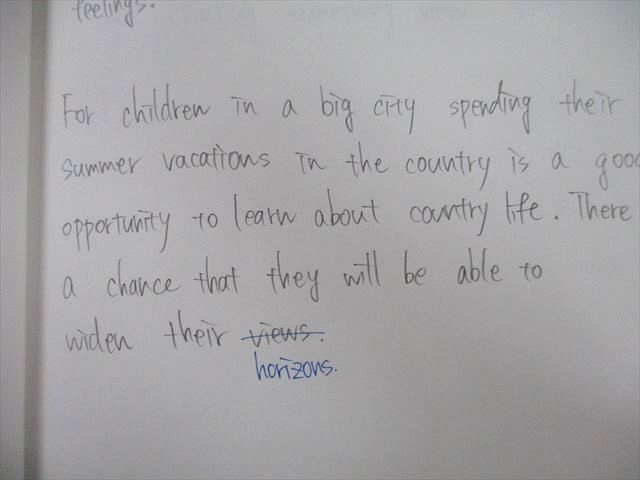 feelings.
For children in a big city spending their
summer vacations in the country is a good
opportunity to learn about country life. There
a chance that they will be able to
widen their views.
horizons.